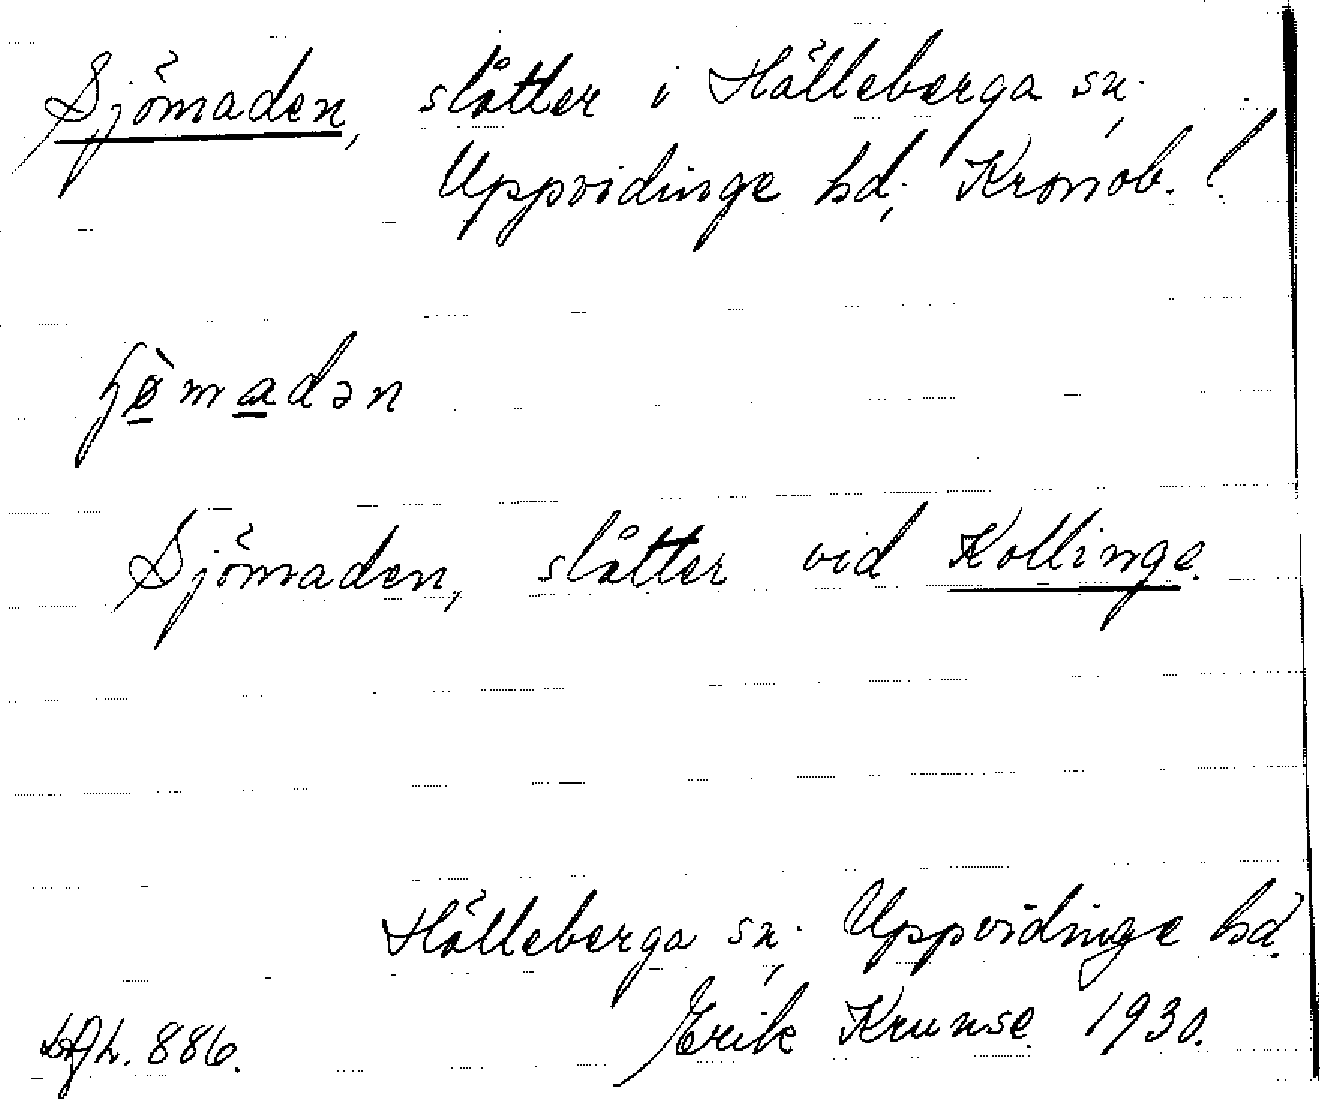 Sjömaden, slåtter i Hälleberga sn.,
Uppvidinge hd., Kronob. l.
Sjömaden, slåtter vid Kollinge.
Hälleberga sn., Uppvidinge hd.
886. Erik Krunse 1930.